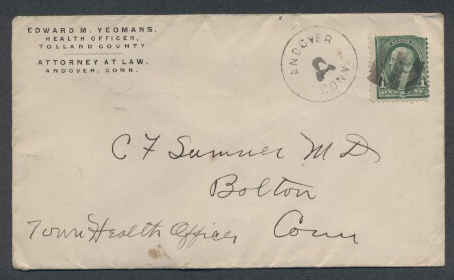 EDWARD M. YEOMANS,
HEALTH OFFICER,
TOLLAND COUNTY
ATTORNEY AT LAW.
ANDOVER, CONN.
ANDOVER
CONN
C F Sumner M D
Bolton
Town Health Officer
Conn